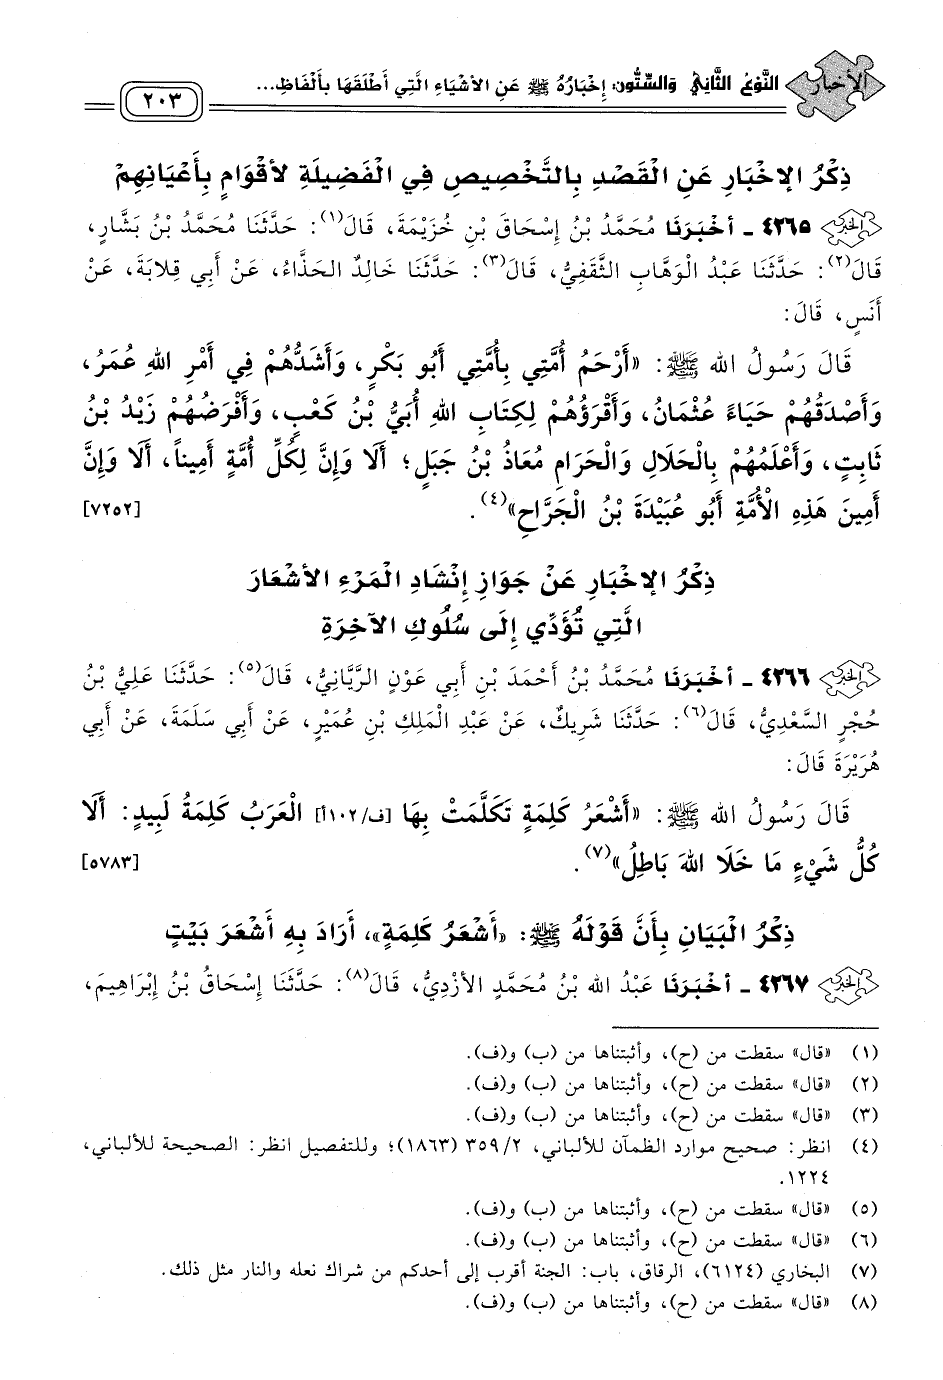 الأخبار
النَّوْعُ الثَّانِي وَالسِّتُّون: إِخْبَارُهُ ﷺ عَنِ الأشْيَاءِ الَّتِي أَطْلَقَهَا بِأَلْفَاظِ...
٢٠٣
ذِكْرُ الإخْبَارِ عَنِ الْقَصْدِ بِالتَّخْصِيصِ فِي الْفَضِيلَةِ لأقْوَامٍ بِأَعْيَانِهِمْ
٤٣٦٥ - أخْبَرَنَا مُحَمَّدُ بْنُ إِسْحَاقَ بْنِ خُزَيْمَةَ، قَالَ(١): حَدَّثَنَا مُحَمَّدُ بْنُ بَشَّارٍ،
قَالَ(٢): حَدَّثَنَا عَبْدُ الْوَهَّابِ الثَّقَفِيُّ، قَالَ(٣): حَدَّثَنَا خَالِدٌ الحَذَّاءُ، عَنْ أَبِي قِلابَةَ، عَنْ
أَنَسٍ، قَالَ:
قَالَ رَسُولُ الله ﷺ: «أَرْحَمُ أُمَّتِي بِأُمَّتِي أَبُو بَكْرٍ، وَأَشَدُّهُمْ فِي أَمْرِ اللهِ عُمَرُ،
وَأَصْدَقُهُمْ حَيَاءً عُثْمَانُ، وَأَقْرَؤُهُمْ لِكِتَابِ اللهِ أُبَيُّ بْنُ كَعْبٍ، وَأَفْرَضُهُمْ زَيْدُ بْنُ
ثَابِتٍ، وَأَعْلَمُهُمْ بِالْحَلالِ وَالْحَرَامِ مُعَاذُ بْنُ جَبَلٍ؛ أَلَا وَإِنَّ لِكُلِّ أُمَّةٍ أَمِيناً، أَلَا وَإِنَّ
أَمِينَ هَذِهِ الأُمَّةِ أَبُو عُبَيْدَةَ بْنُ الْجَرَّاحِ»(٤). [٧٢٥٢]
ذِكْرُ الإخْبَارِ عَنْ جَوَازِ إِنْشَادِ الْمَرْءِ الأشْعَارَ
الَّتِي تُؤَدِّي إِلَى سُلُوكِ الآخِرَةِ
٤٣٦٦ - أخْبَرَنَا مُحَمَّدُ بْنُ أَحْمَدَ بْنِ أَبِي عَوْنٍ الرَّيَّانِيُّ، قَالَ(٥): حَدَّثَنَا عَلِيُّ بْنُ
حُجْرٍ السَّعْدِيُّ، قَالَ(٦): حَدَّثَنَا شَرِيكٌ، عَنْ عَبْدِ الْمَلِكِ بْنِ عُمَيْرٍ، عَنْ أَبِي سَلَمَةَ، عَنْ أَبِي
هُرَيْرَةَ قَالَ:
قَالَ رَسُولُ الله ﷺ: «أَشْعَرُ كَلِمَةٍ تَكَلَّمَتْ بِهَا [ف/١٠٢أ] الْعَرَبُ كَلِمَةُ لَبِيدٍ: أَلَا
كُلُّ شَيْءٍ مَا خَلَا اللهَ بَاطِلُ»(٧). [٥٧٨٣]
ذِكْرُ الْبَيَانِ بِأَنَّ قَوْلَهُ ﷺ: «أَشْعَرُ كَلِمَةٍ»، أَرَادَ بِهِ أَشْعَرَ بَيْتٍ
٤٣٦٧ - أخْبَرَنَا عَبْدُ الله بْنُ مُحَمَّدٍ الأزْدِيُّ، قَالَ(٨): حَدَّثَنَا إِسْحَاقُ بْنُ إِبْرَاهِيمَ،
(١) «قال» سقطت من (ح)، وأثبتناها من (ب) و(ف).
(٢) «قال» سقطت من (ح)، وأثبتناها من (ب) و(ف).
(٣) «قال» سقطت من (ح)، وأثبتناها من (ب) و(ف).
(٤) انظر: صحيح موارد الظمآن للألباني، ٣٥٩/٢ (١٨٦٣)؛ وللتفصيل انظر: الصحيحة للألباني،
١٢٢٤.
(٥) «قال» سقطت من (ح)، وأثبتناها من (ب) و(ف).
(٦) «قال» سقطت من (ح)، وأثبتناها من (ب) و(ف).
(٧) البخاري (٦١٢٤)، الرقاق، باب: الجنة أقرب إلى أحدكم من شراك نعله والنار مثل ذلك.
(٨) «قال» سقطت من (ح)، وأثبتناها من (ب) و(ف).